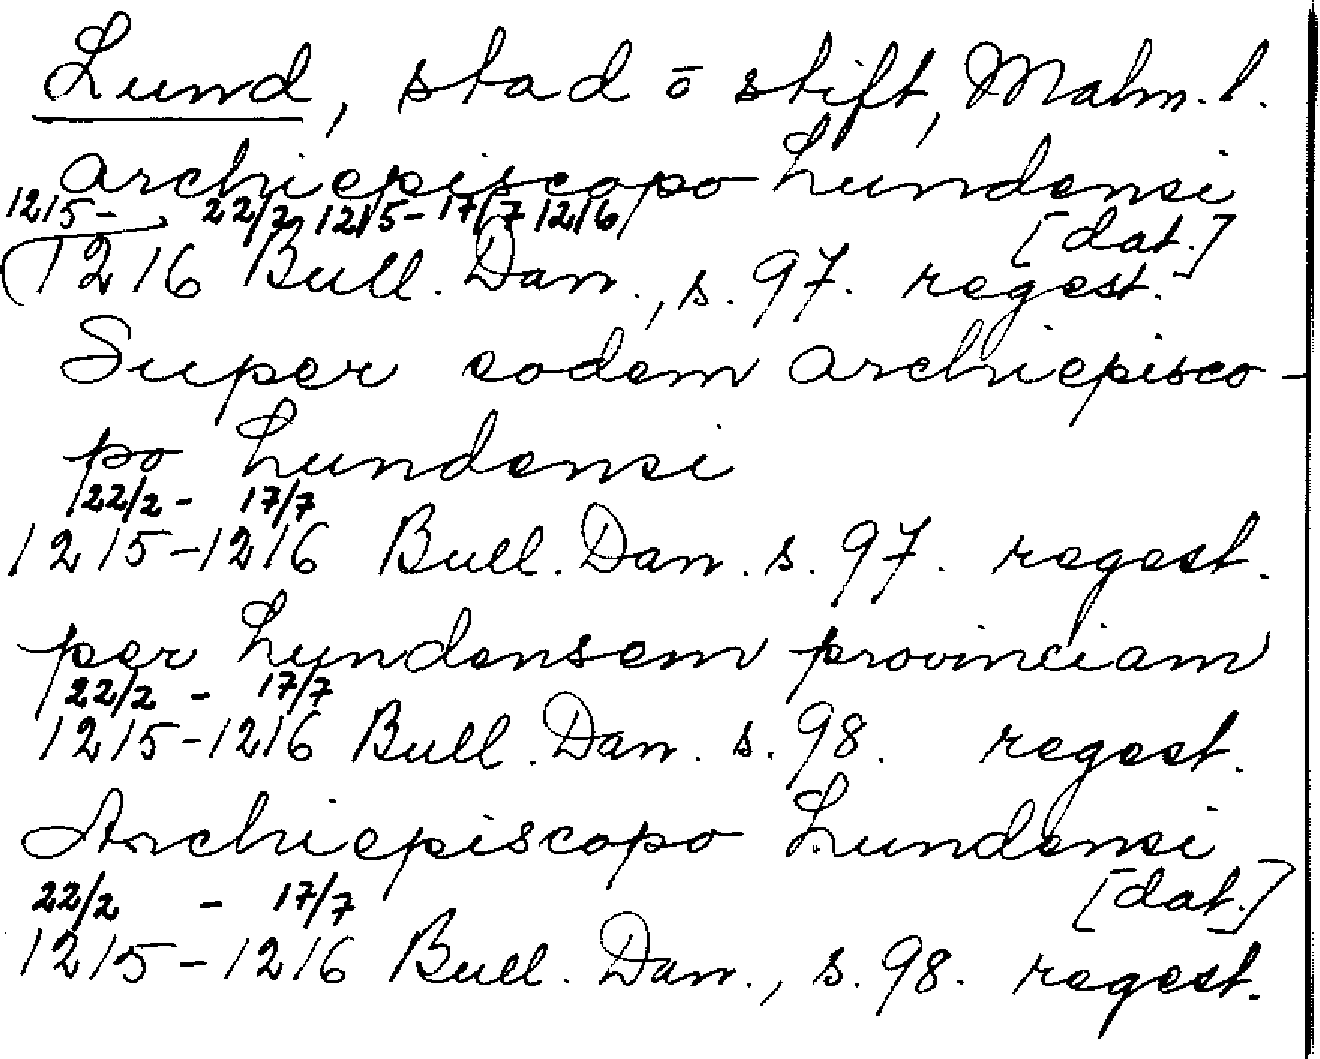 Lund, stad ō stift, Malm. l.
archiepiscopo Lundensi
1215- 22/2 1215-17/7 1216 [dat.]
1216 Bull. Dan., s. 97. regest.
Super eodem archiepisco-
po Lundensi
22/2 - 17/7
1215-1216 Bull. Dan. s. 97. regest.
per Lundensem provinciam
22/2 - 17/7
1215-1216 Bull. Dan. s. 98. regest.
Archiepiscopo Lundensi
22/2 - 17/7 [dat.]
1215-1216 Bull. Dan., s. 98. regest.